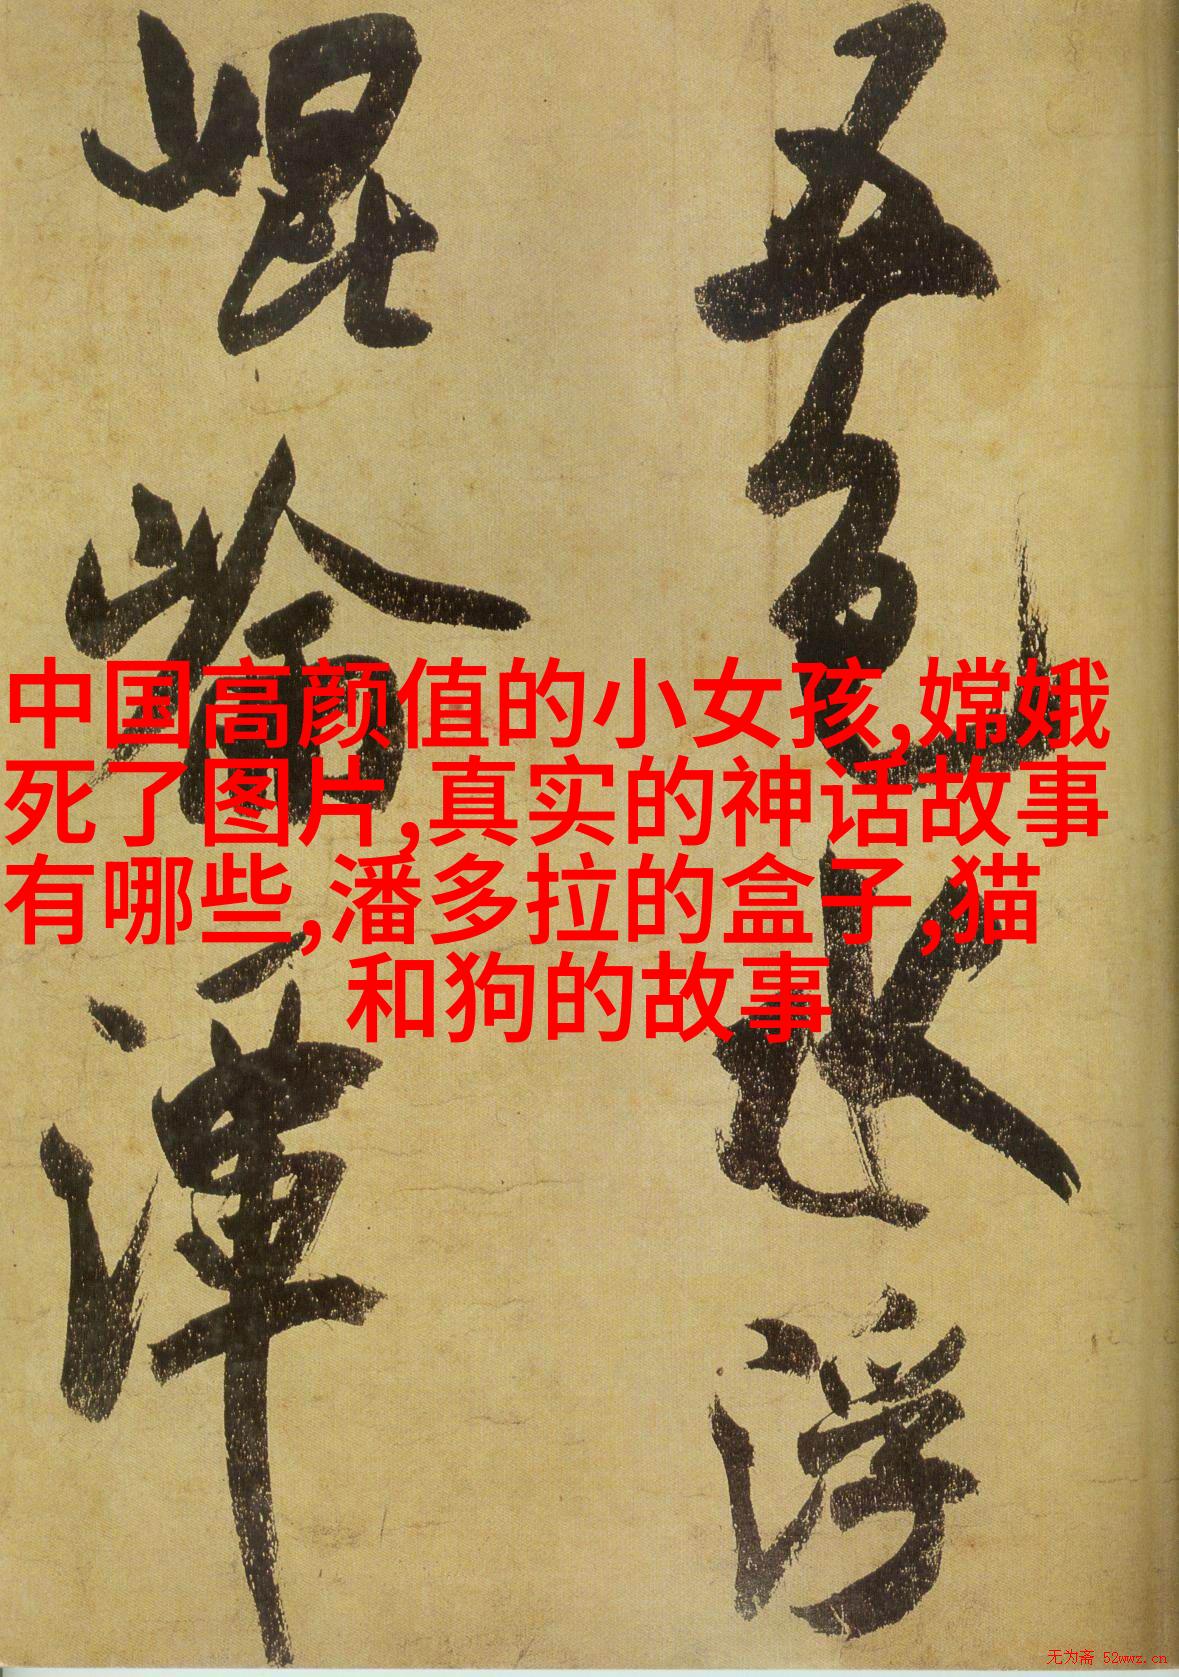 五色水浮
崐崘潭
中国高颜值的小女孩,嫦娥
死了图片,真实的神话故事
有哪些,潘多拉的盒子,猫
和狗的故事
无为斋 52wwz.cn